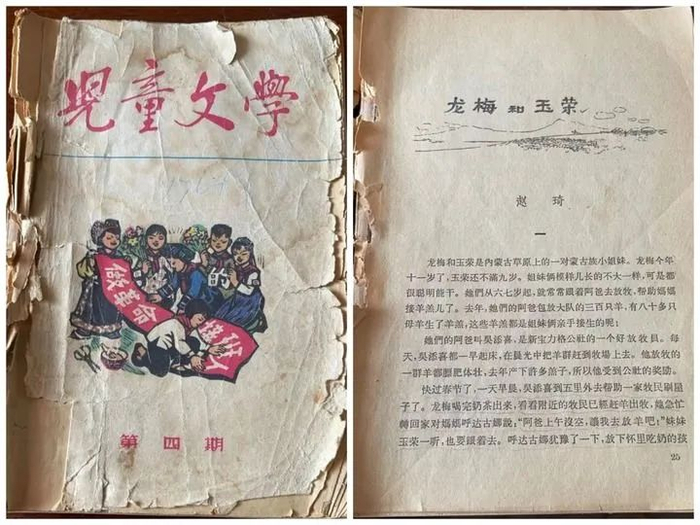 兒童文學
做革命
的
接班人
第四期
龙梅和玉荣
赵琦
一
龙梅和玉荣是內蒙古草原上的一对蒙古族小姐妹。龙梅今年
十一岁了,玉荣还不滿九岁。姐妹俩模样儿长的不大一样,可是都
很聪明能干。她們从六七岁起,就常常跟着阿爸去放牧,帮助媽媽
接羊羔儿了。去年,她們的阿爸包放大队的三百只羊,有八十多只
母羊生了羊羔,这些羊羔都是姐妹俩亲手接生的呢!
她們的阿爸叫吳添喜,是新宝力格公社的一个好放牧員。每
天,吳添喜都一早起床,在晨光中把羊群赶到牧場上去。他放牧的
一群羊都膘肥体壮,去年产下許多羔子,所以他受到公社的奖励。
快过春节了,一天早晨,吳添喜到五里外去帮助一家牧民刷屋
子了。龙梅喝完奶茶出来,看看附近的牧民已經赶羊出牧,她急忙
轉回家对媽媽呼达古娜說:“阿爸上午沒空,讓我去放羊吧!”妹妹
玉荣一听,也要跟着去。呼达古娜犹豫了一下,放下怀里吃奶的孩
25